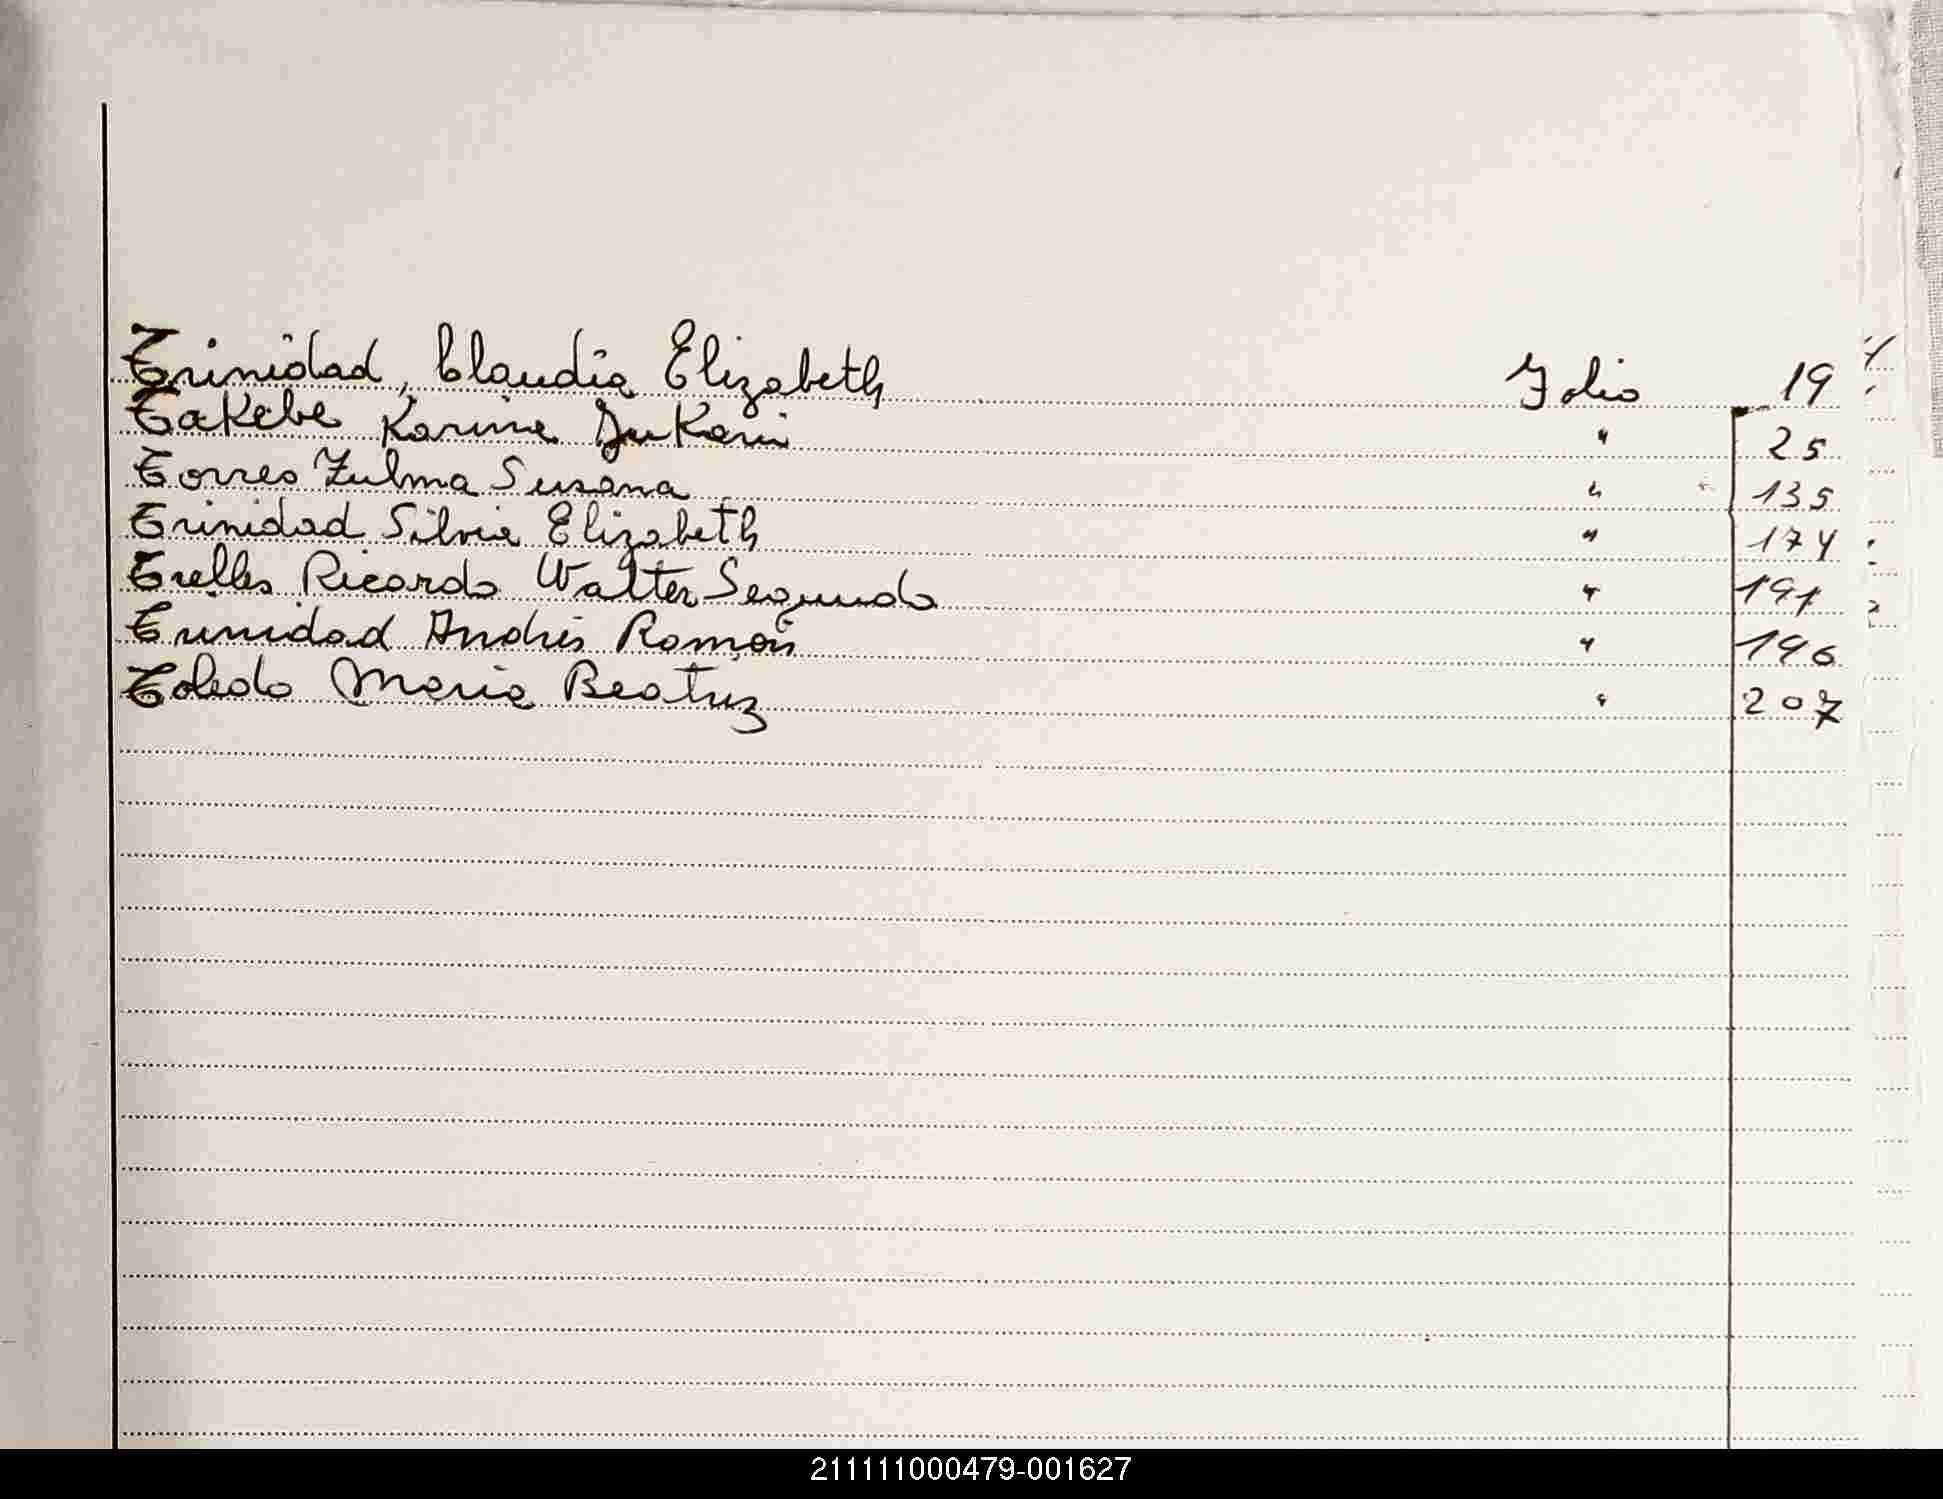 Trinidad, Claudia Elizabeth Folio 19
Takebe Karina Yukari " 25
Torres Zulma Susana " 135
Trinidad Silvia Elizabeth " 174
Trelles Ricardo Walter Segundo " 191
Trinidad Andrés Román " 196
Toledo Maria Beatriz " 207
211111000479-001627